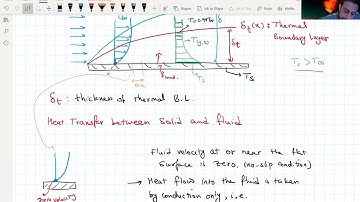 δt(x): Thermal
Boundary Layer
T(y,x)
δt
Ts > T∞
Ts
Ts
qcond.
δt : thicknes of thermal B.L.
Heat Transfer between Solid and fluid
Fluid velocity at or near the flat
Surface is zero. (no-slip condition)
→ Heat flow into the fluid is taken
by conduction only, i.e.
Zero velocity